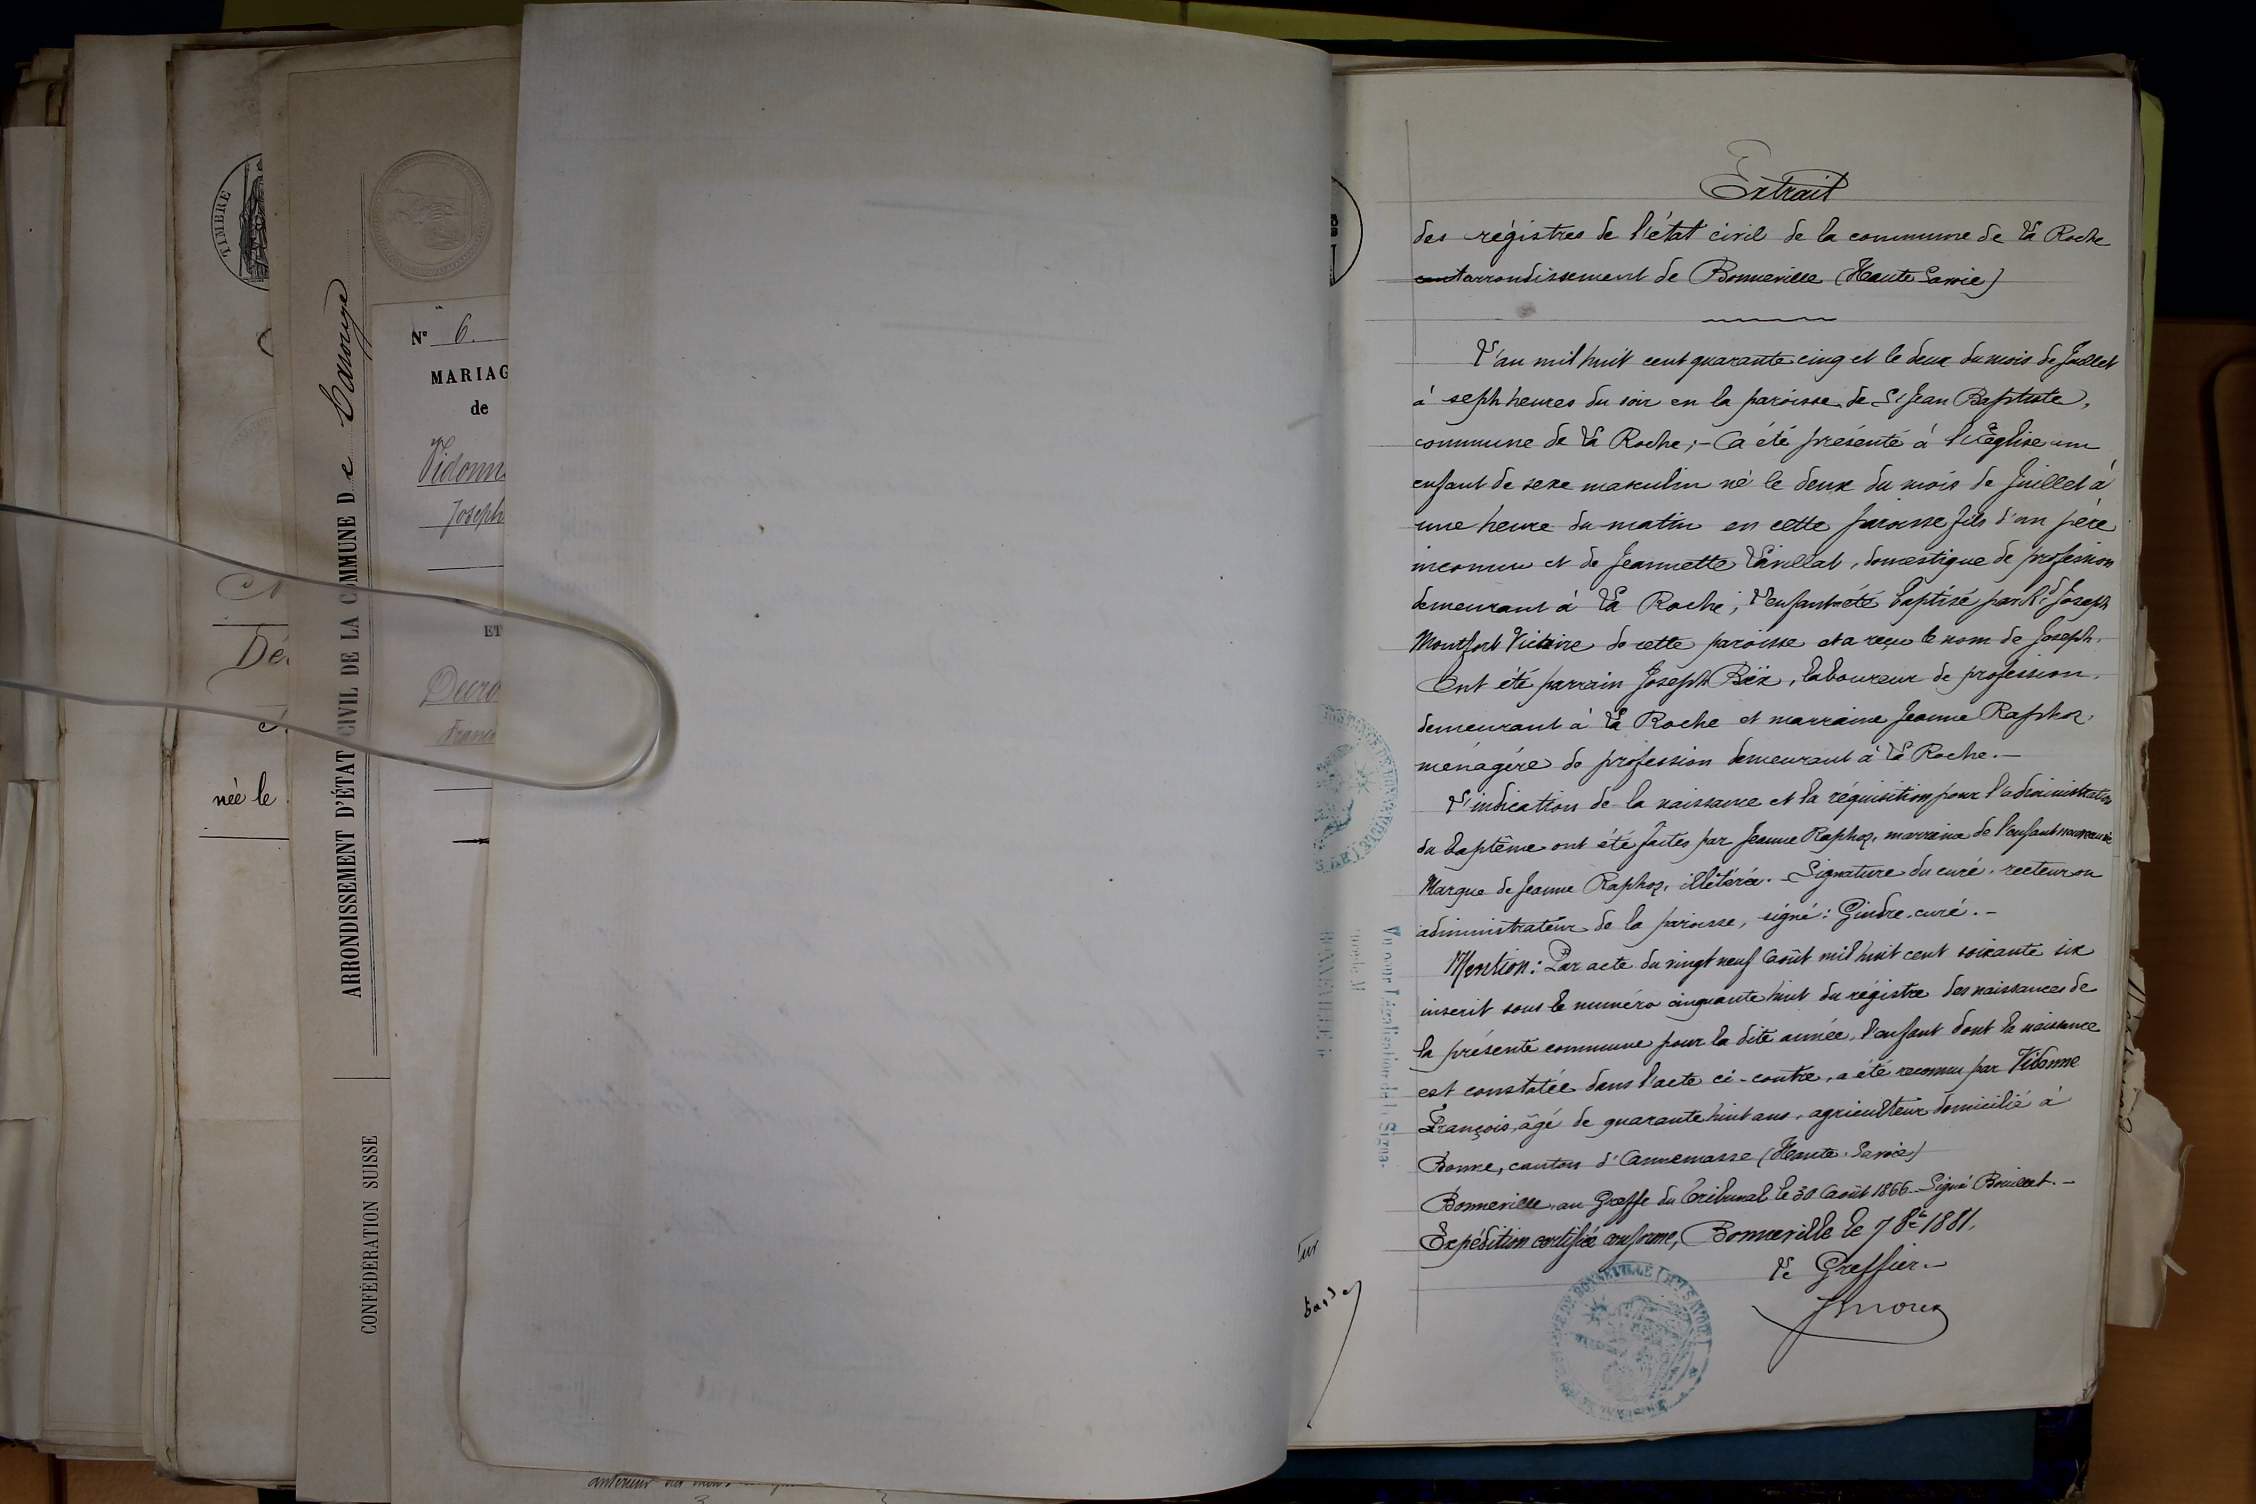 TIMBRE
Dé
née le
ARRONDISSEMENT D'ÉTAT CIVIL DE LA COMMUNE De Carouge
CONFÉDÉRATION SUISSE
N° 6.
MARIAG
de
Vidonn
Joseph
ET
Decro
Franc
Extrait
des régistres de l'état civil de la commune de La Roche
cant arrondissement de Bonneville (Haute Savoie)
L'an mil huit cent quarante cinq et le deux du mois de Juillet
à sept heures du soir en la paroisse de St Jean Baptiste,
commune de La Roche; - A été présenté à l'Eglise un
enfant de sexe masculin né le deux du mois de Juillet à
une heure du matin en cette paroisse fils d'un père
inconnu et de Jeannette, domestique de profession
demeurant à La Roche; L'enfant été baptisé par Rd Joseph
Montfort Vicaire de cette paroisse et a reçu le nom de Joseph.
Ont été parrain Joseph, laboureur de profession,
demeurant à La Roche et marraine Jeanne Raphoz,
ménagère de profession demeurant à La Roche. -
L'indication de la naissance et la réquisition pour l'administration
du baptême ont été faites par Jeanne Raphoz, marraine de l'enfant nouveau né
Marque de Jeanne Raphoz, illétérée. - Signature du curé, recteur ou
administrateur de la paroisse, signé: Gindre, curé. -
Mention: Par acte du vingt neuf Août mil huit cent soixante six
inscrit sous le numéro cinquante huit du régistre des naissances de
la présente commune pour la dite année, l'enfant dont la naissance
est constatée dans l'acte ci-contre, a été reconnu par Vidonne
François, âgé de quarante huit ans, agriculteur domicilié à
Bonne, canton d'Annemasse (Haute-Savoie)
Bonneville, au Greffe du Tribunal le 30 Août 1866. Signé -
Expédition certifiée conforme, Bonneville le 7 8bre 1881.
Le Greffier. -
Vu pour Légalisation de la Signa-